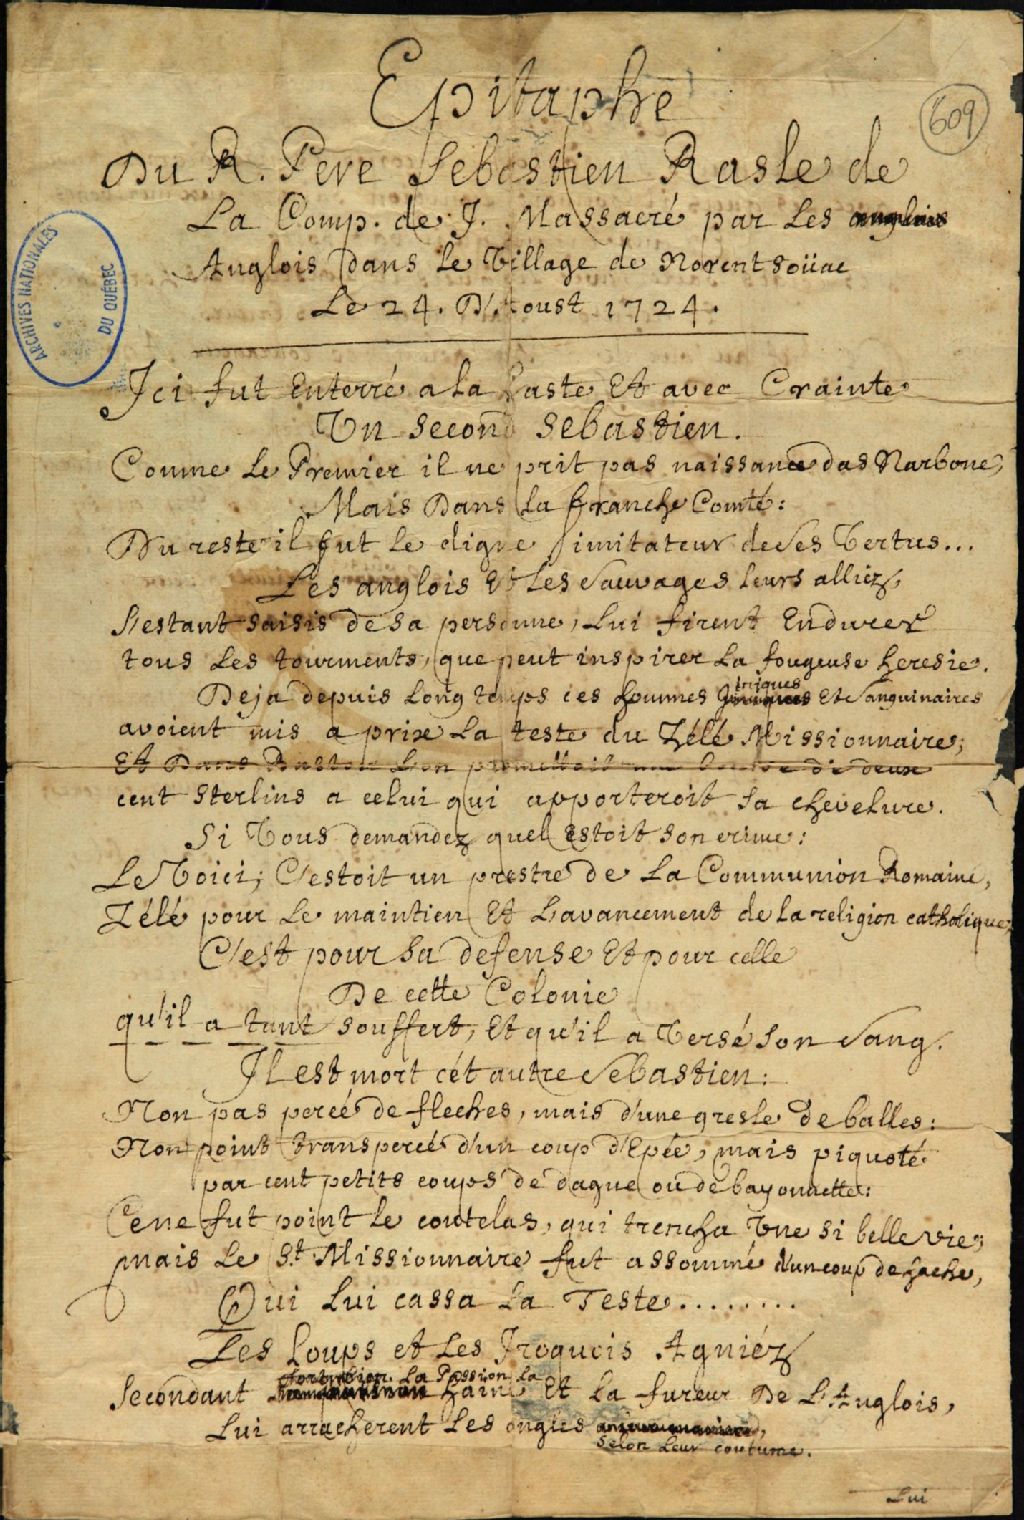 609
Epitaphe
Du R. Pere Sebastien Rasle de
La Comp. de J. Massacré par les anglois
Anglois dans le Village de Norentsoüac
Le 24. D'Aoust 1724.
ARCHIVES NATIONALES
DU QUÉBEC
Ici fut Enterré a la haste Et avec Crainte
Un second Sebastien.
Comme le Premier il ne prit pas naissance das Narbone,
Mais Dans la franche Comté:
Du reste il fut le digne imitateur de ses Vertus...
Les anglois Et les Sauvages leurs alliez,
S'estant saisis de sa personne, lui firent Endurer
tous les tourments, que peut inspirer la fougeuse heresie.
Deja depuis long temps ces hommes iniques Et Sanguinaires
avoient mis a prix la teste du Zélé Missionnaire;
Et Dans Baston l'on promettoit une bourse de deux
cent Sterlins a celui qui apporteroit sa chevelure.
Si Vous demandez quel Estoit son crime:
Le Voici; C'estoit un prestre de la Communion Romaine,
Zélé pour le maintien Et l'avancement de la religion catholique,
C'est pour sa defense Et pour celle
De cette Colonie
qu'il a tant souffert, Et qu'il a Versé son Sang.
Il est mort cét autre Sebastien:
Non pas percé de fleches, mais d'une gresle de balles:
Non point transpercé d'un coup d'Epée, mais piquoté
par cent petits coups de dague ou de bayonnette:
Ce ne fut point le coutelas, qui trencha Une si belle vie;
mais le St. Missionnaire fut assommé d'un coup de hache,
Qui lui cassa la Teste........
Les Loups et les Iroquois Agniéz
fort bien la Passion la
Secondant haine Et la fureur De L'Anglois,
Lui arracherent les ongles
Selon leur coutume.
Lui